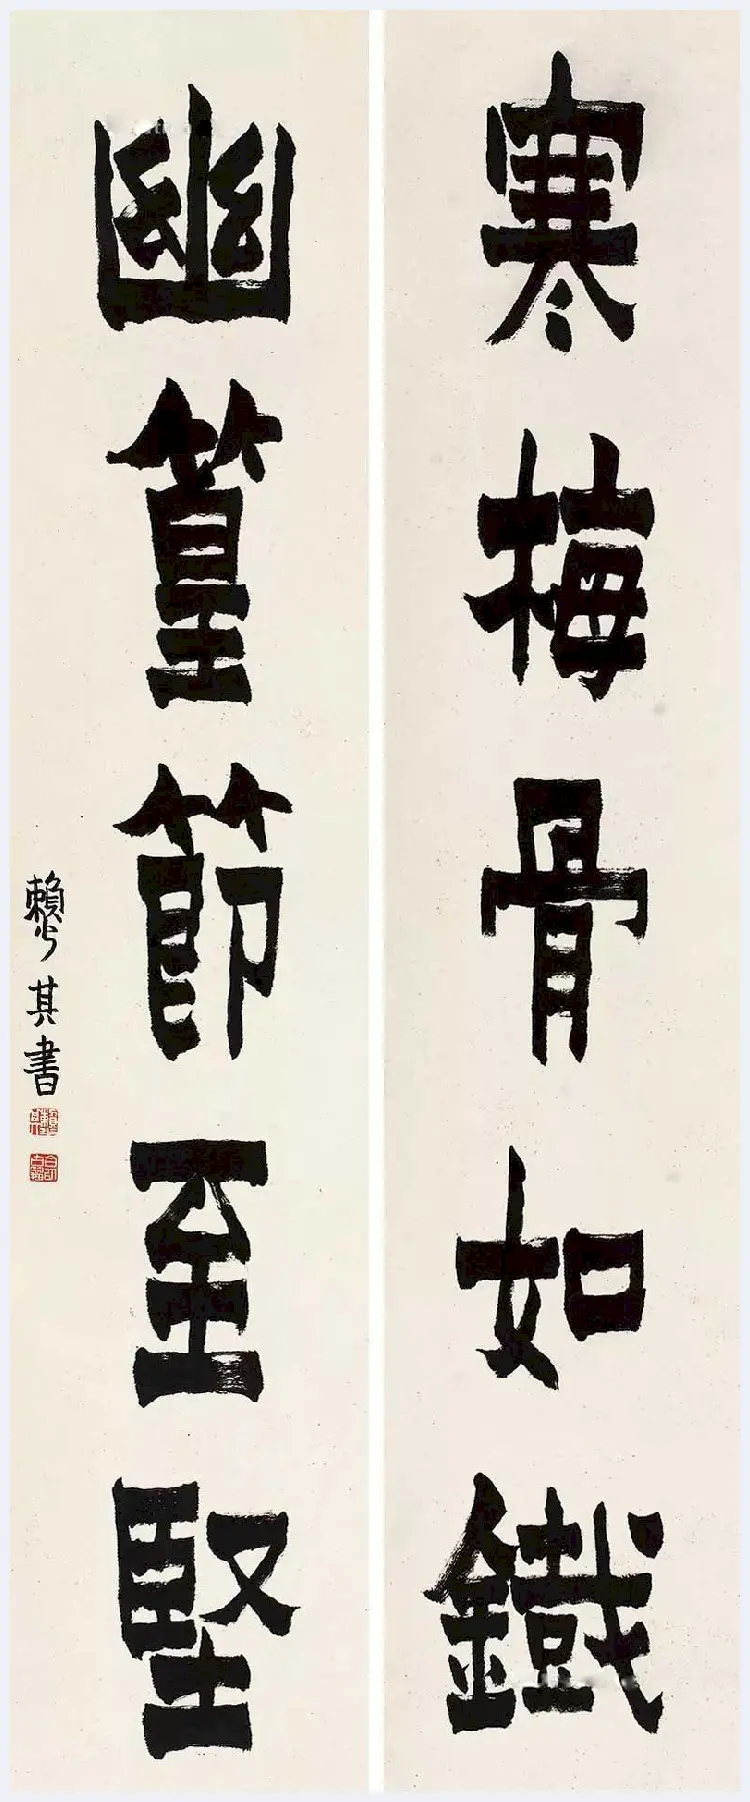 寒梅骨如鐵
幽篁節至堅
賴少其書